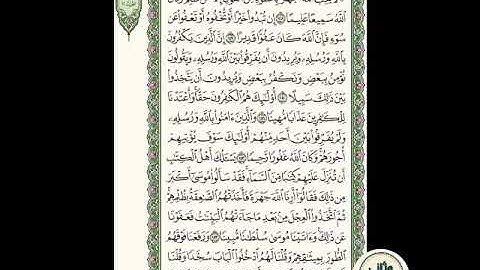 ٱللَّهُ سَمِيعًا عَلِيمًا إِن تُبْدُوا۟ خَيْرًا أَوْ تُخْفُوهُ أَوْ تَعْفُوا۟ عَن
سُوٓءٍ فَإِنَّ ٱللَّهَ كَانَ عَفُوًّا قَدِيرًا إِنَّ ٱلَّذِينَ يَكْفُرُونَ
بِٱللَّهِ وَرُسُلِهِۦ وَيُرِيدُونَ أَن يُفَرِّقُوا۟ بَيْنَ ٱللَّهِ وَرُسُلِهِۦ وَيَقُولُونَ
نُؤْمِنُ بِبَعْضٍ وَنَكْفُرُ بِبَعْضٍ وَيُرِيدُونَ أَن يَتَّخِذُوا۟
بَيْنَ ذَٰلِكَ سَبِيلًا أُو۟لَٰٓئِكَ هُمُ ٱلْكَٰفِرُونَ حَقًّا وَأَعْتَدْنَا
لِلْكَٰفِرِينَ عَذَابًا مُّهِينًا وَٱلَّذِينَ ءَامَنُوا۟ بِٱللَّهِ وَرُسُلِهِۦ
وَلَمْ يُفَرِّقُوا۟ بَيْنَ أَحَدٍ مِّنْهُمْ أُو۟لَٰٓئِكَ سَوْفَ يُؤْتِيهِمْ
أُجُورَهُمْ وَكَانَ ٱللَّهُ غَفُورًا رَّحِيمًا يَسْـَٔلُكَ أَهْلُ ٱلْكِتَٰبِ
أَن تُنَزِّلَ عَلَيْهِمْ كِتَٰبًا مِّنَ ٱلسَّمَآءِ فَقَدْ سَأَلُوا۟ مُوسَىٰٓ أَكْبَرَ
مِن ذَٰلِكَ فَقَالُوٓا۟ أَرِنَا ٱللَّهَ جَهْرَةً فَأَخَذَتْهُمُ ٱلصَّٰعِقَةُ بِظُلْمِهِمْ
ثُمَّ ٱتَّخَذُوا۟ ٱلْعِجْلَ مِنۢ بَعْدِ مَا جَآءَتْهُمُ ٱلْبَيِّنَٰتُ فَعَفَوْنَا
عَن ذَٰلِكَ وَءَاتَيْنَا مُوسَىٰ سُلْطَٰنًا مُّبِينًا وَرَفَعْنَا فَوْقَهُمُ
ٱلطُّورَ بِمِيثَٰقِهِمْ وَقُلْنَا لَهُمُ ٱدْخُلُوا۟ ٱلْبَابَ سُجَّدًا وَقُلْنَا